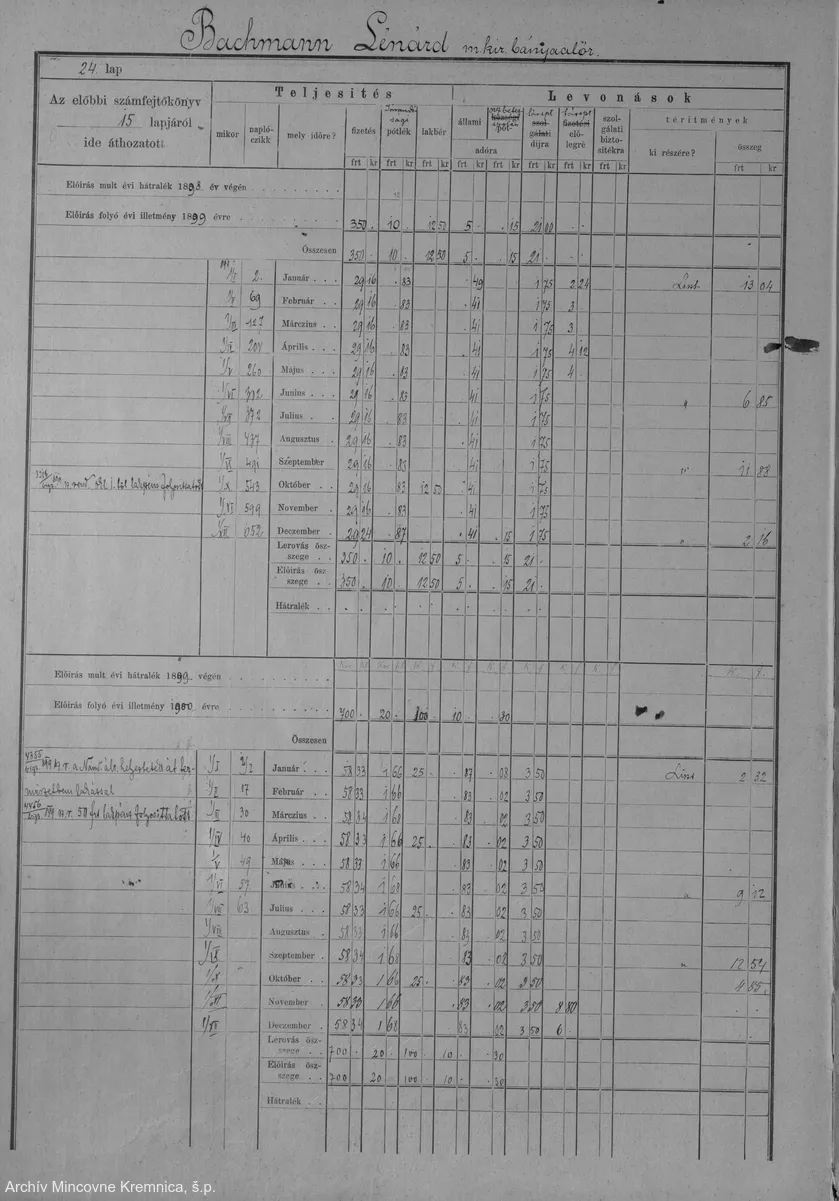 Bachmann Lénárd m. kir. bányaalőr.
24. lap
Az előbbi számfejtőkönyv
15 lapjáról
ide áthozatott
Teljesités
Levonások
mikor
napló-
czikk
mely időre?
fizetés
pótlék
lakbér
állami
adóra
díjra
elő-
legre
szol-
gálati
bizto-
sitékra
téritmények
ki részére?
összeg
frt kr frt kr frt kr frt kr frt kr frt kr frt kr frt kr frt kr
Előirás mult évi hátralék 1898. év végén
Előirás folyó évi illetmény 1899 évre 350 . 10 . 12 50 5 . . 15 21 00 . .
Összesen 350 . 10 . 12 50 5 . . 15 21 .
1/I 2. Január . . . 29 16 . 83 . 49 1 75 2 24 Liszt 13 04
69 Február . . . 29 16 . 83 . 41 1 75 3 .
1/III 127 Márczius . . 29 16 . 83 . 41 1 75 3 .
201 Április . . . 29 16 . 83 . 41 1 75 4 12
1/V 260 Május . . . 29 16 . 83 . 41 1 75 4 .
1/VI Junius . . . 29 16 . 83 . 41 1 75 " 6 85
372 Julius . . 29 16 . 83 . 41 1 75
1/VIII 437 Augusztus 29 16 . 83 . 41 1 75
1/IX 491 Szeptember 29 16 . 83 . 41 1 75 " 11 83
1/X 543 Október . . 29 16 . 83 12 50 . 41 1 75
1/XI 599 November . 29 16 . 83 . 41 1 75
1/XII 652 Deczember . 29 24 . 87 . 41 . 15 1 75 " 2 16
Lerovás ösz-
szege . . . 350 . 10 . 12 50 5 . . 15 21 .
Előirás ösz-
szege . . 350 . 10 . 12 50 5 . . 15 21 .
Hátralék . .
Előirás mult évi hátralék 1899. végén
Előirás folyó évi illetmény 1900. évre 700 . 20 . 100 . 10 . . 30
Összesen
1/I Január . . . 58 33 1 66 25 . . 87 . 08 3 50 Liszt 2 32
1/II 17 Február . . . 58 33 1 66 . 83 . 02 3 50
1/III 30 Márczius . . 58 34 1 68 . 83 . 02 3 50
1/IV 40 Április . . . 58 33 1 66 25 . . 83 . 02 3 50
1/V 49 Május . . . 58 33 1 66 . 83 . 02 3 50
1/VI 57 Junius . . 58 34 1 68 . 83 . 02 3 50 " 9 12
1/VII 63 Julius . . . 58 33 1 66 25 . . 83 . 02 3 50
1/VIII Augusztus . 58 33 1 66 . 83 . 02 3 50
1/IX Szeptember . 58 34 1 68 . 83 . 08 3 50 " 12 57
1/X Október . . 58 33 1 66 25 . . 83 . 02 3 50 4 85
1/XI November . 58 33 1 66 . 83 . 02 3 50 8 80
Deczember . 58 34 1 68 . 83 . 02 3 50 6 .
Lerovás ösz-
szege . . 700 . 20 . 100 . 10 . . 30
Előirás ösz-
szege . . 700 . 20 . 100 . 10 . . 30
Hátralék . .
Archív Mincovne Kremnica, š.p.